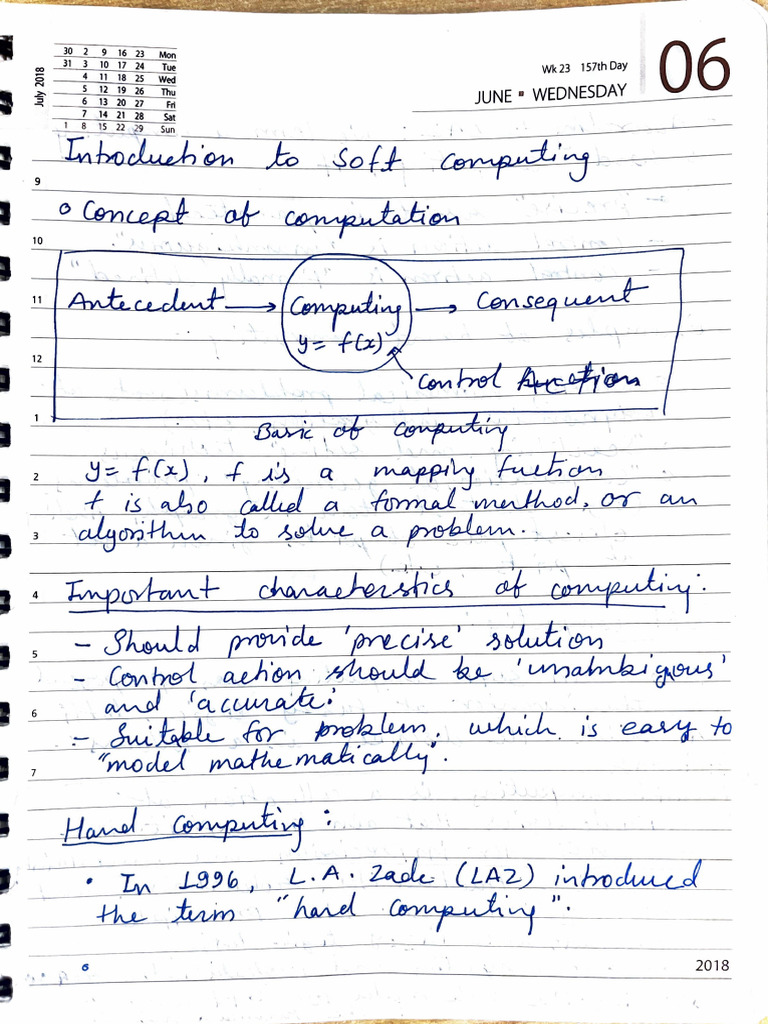 July 2018
30 2 9 16 23 Mon
31 3 10 17 24 Tue
4 11 18 25 Wed
5 12 19 26 Thu
6 13 20 27 Fri
7 14 21 28 Sat
1 8 15 22 29 Sun
Wk 23 157th Day
JUNE ▪ WEDNESDAY
06
Introduction to Soft computing
9
o Concept of computation
10
11 Antecedent → Computing → Consequent
y = f(x)
12
control Auction
1
Basic of computing
2 y = f(x), f is a mapping fuction
f is also called a formal merthod, or an
3 algorithm to solve a problem.
4 Important characterstics of computing:
5 - Should provide 'precise' solution
- Control action should be 'unambigous'
6 and 'accurate'
- Suitable for problem, which is easy to
7 "model mathematically".
Hard computing:
• In 1996, L.A. Zade (LAZ) introduced
the term "hard computing".
2018